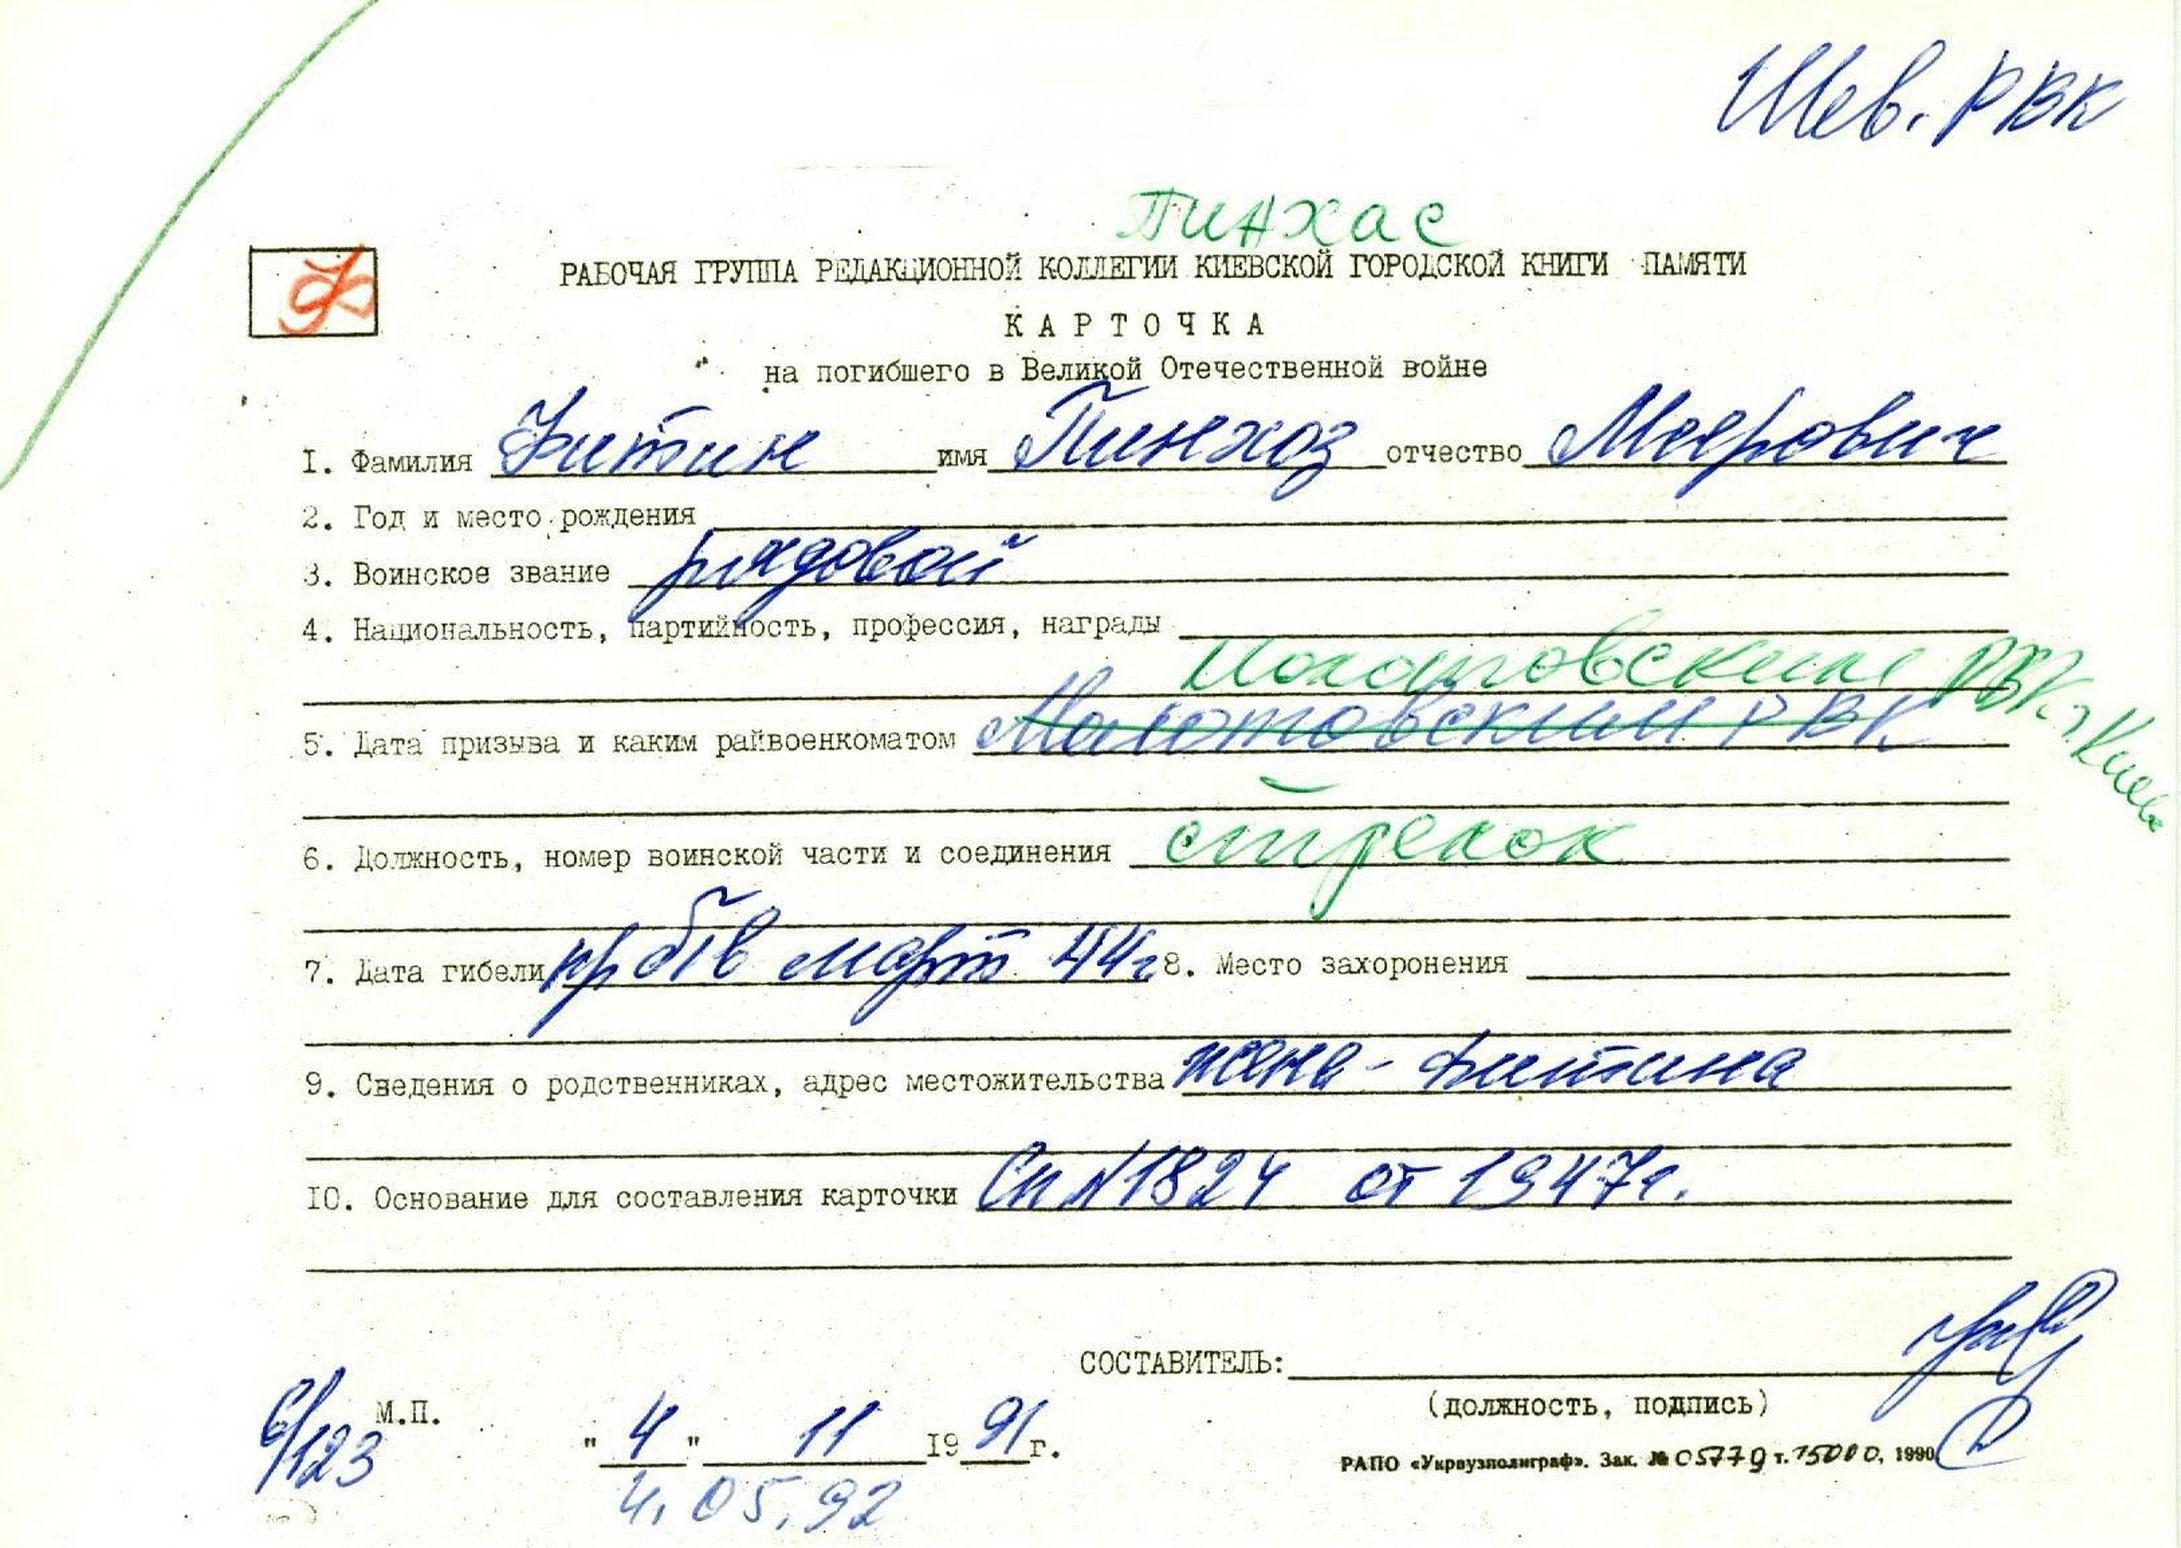 Шев. РВК
Пинхас
РАБОЧАЯ ГРУППА РЕДАКЦИОННОЙ КОЛЛЕГИИ КИЕВСКОЙ ГОРОДСКОЙ КНИГИ ПАМЯТИ
КАРТОЧКА
на погибшего в Великой Отечественной войне
I. Фамилия Фитин имя Пинхоз отчество Меерович
2. Год и место рождения
3. Воинское звание рядовой
4. Национальность, партийность, профессия, награды
РВК г. Киева
5. Дата призыва и каким райвоенкоматом Молотовский РВК
6. Должность, номер воинской части и соединения стрелок
7. Дата гибели пр б/в март 44г 8. Место захоронения
9. Сведения о родственниках, адрес местожительства жена - Фитина
IO. Основание для составления карточки Сп N 1824 от 1947г.
СОСТАВИТЕЛЬ:
(должность, подпись)
6/123 М.П.
" 4 " 11 I9 91 г.
РАПО «Укрвузполиграф». Зак. № 05779 т. 15000, 1990
4.05.92